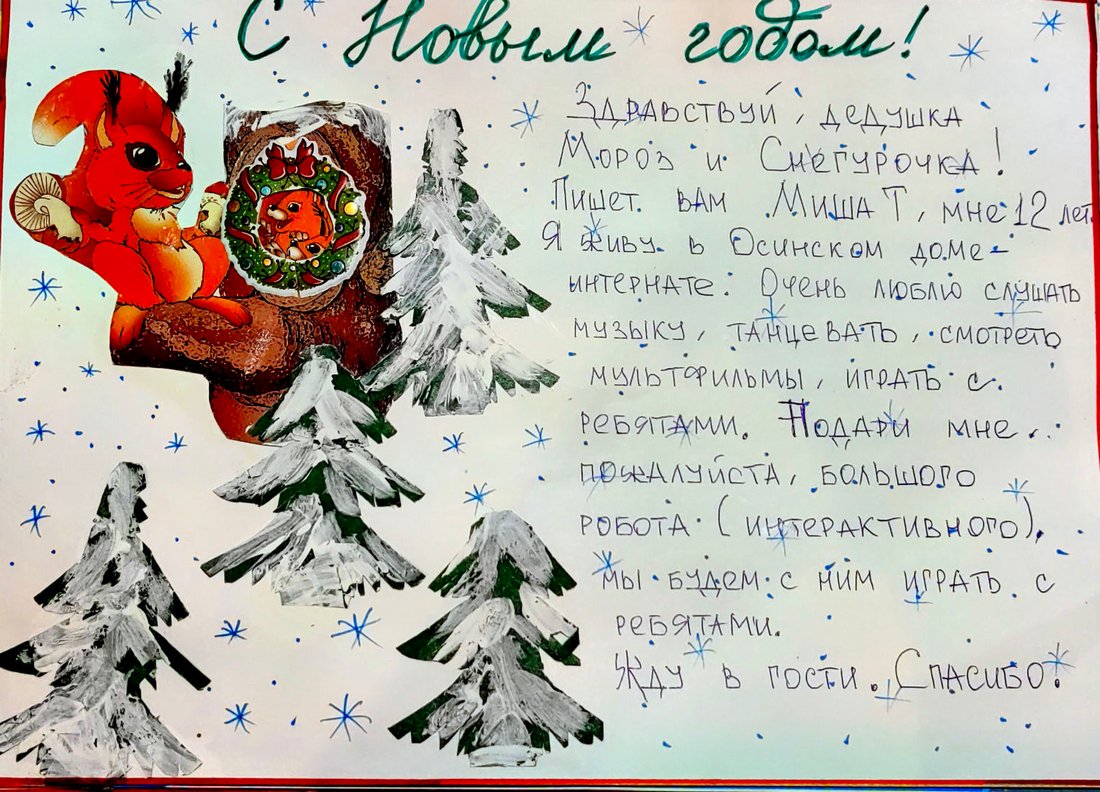 С Новым годом!
Здравствуй, дедушка
Мороз и Снегурочка!
Пишет вам Миша Т, мне 12 лет.
Я живу в Осинском доме-
интернате. Очень люблю слушать
музыку, танцевать, смотреть
мультфильмы, играть с
ребятами. Подари мне,
пожалуйста, большого
робота (интерактивного),
мы будем с ним играть с
ребятами.
Жду в гости. Спасибо!